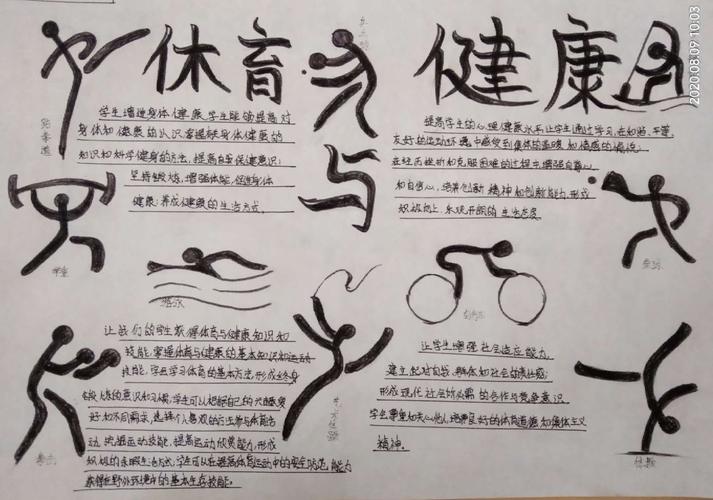 体育与健康
2020.08.09 10:03
乒乓球
跆拳道
学生增进身体健康,学生能够提高对
身体和健康的认识,掌握有身体健康的
知识和科学健身的方法,提高自我保健意识;
坚持锻炼,增强体能,促进身体
健康;养成健康的生活方式。
提高学生的心理健康水平,让学生通过学习,在和谐、平等、
友好的运动环境中感受到集体的温暖和情感的愉悦;
在经历挫折和克服困难的过程中,增强自尊心
和自信心,培养创新精神和创新能力,形成
积极向上、乐观开朗的生活态度
举重
垒球
游泳
自行车
让我们的学生获得体育与健康知识和
技能,掌握体育与健康的基本知识和运动
技能,学习体育的基本方法,形成终身
锻炼的意识和习惯,学生可以根据自己的兴趣爱
好和不同需求,选择个人喜欢的方法参与体育活
动,挖掘运动技能,提高运动欣赏能力,形成
积极的余暇生活方式,学生可以在提高体育运动中的安全防范能力
获得在野外环境中的基本生存技能。
让学生增强社会适应能力,
建立起对自我、群体和社会的责任感;
形成现代社会所必需的合作与竞争意识
学会尊重和关心他人,培养良好的体育道德和集体主义
精神。
拳击
体操